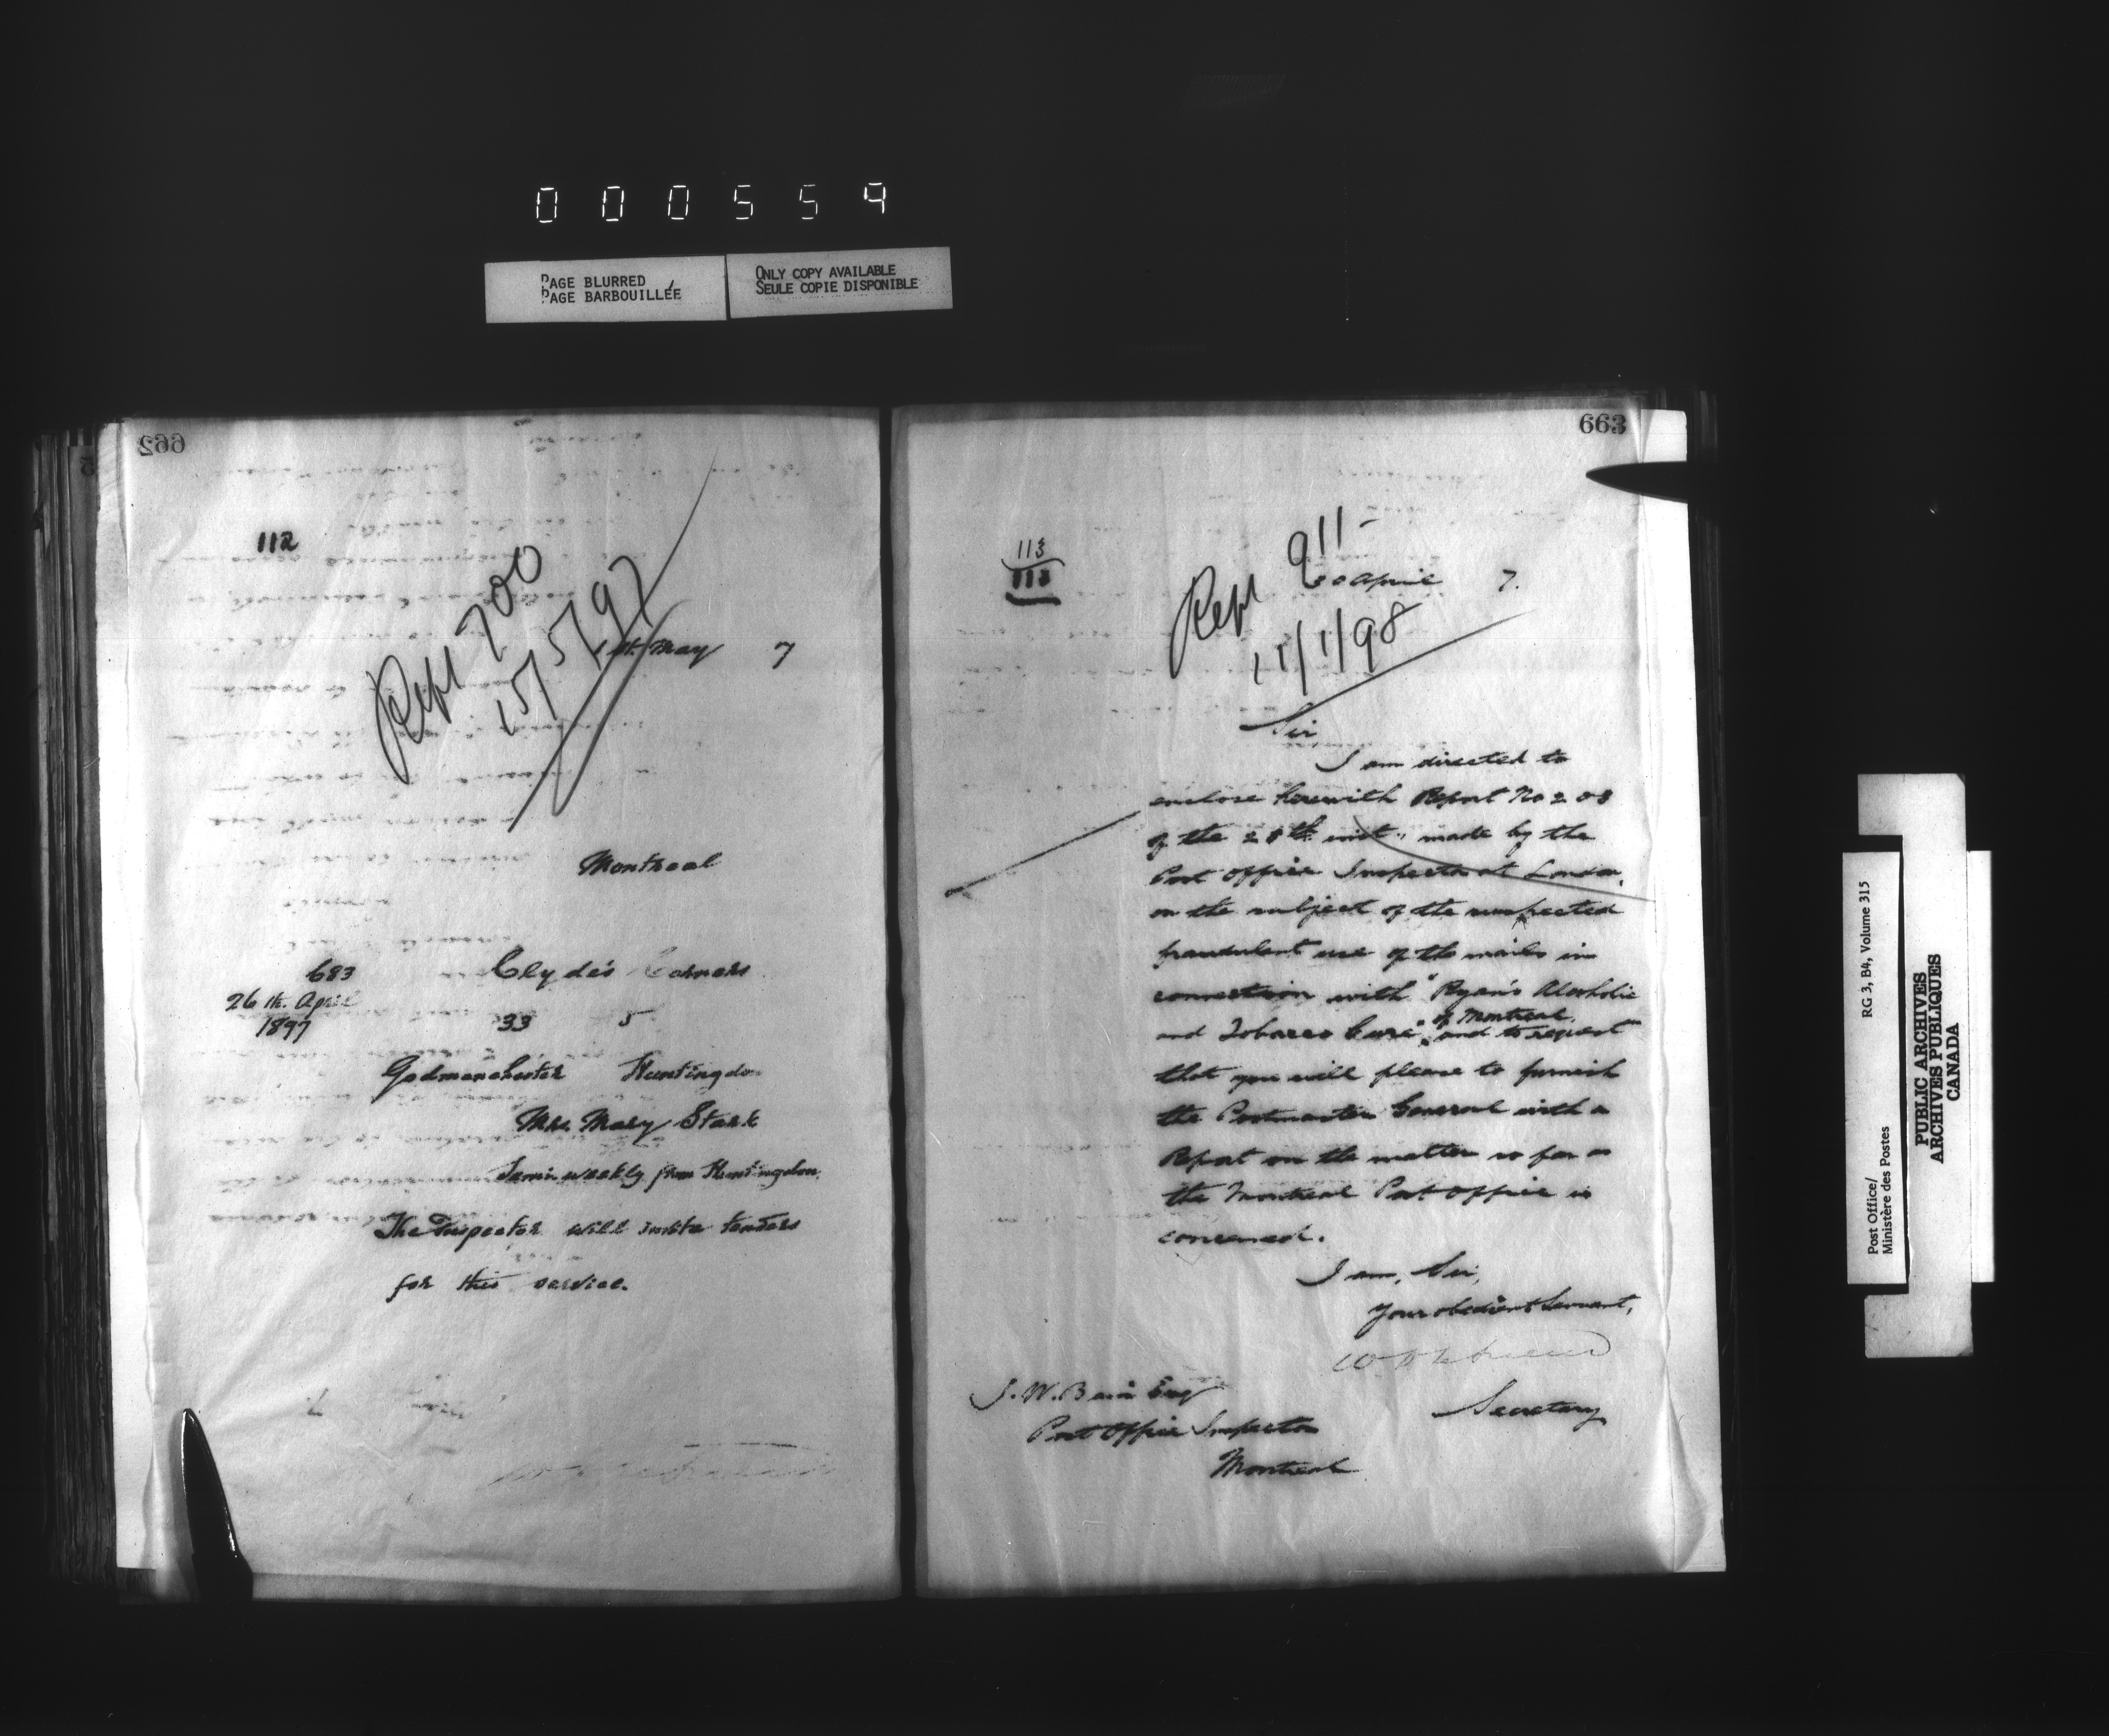 000554
PAGE BLURRED
PAGE BARBOUILLÉE
ONLY COPY AVAILABLE
SEULE COPIE DISPONIBLE
662
112
Rept 700
15/5/97
1st. May 7
Montreal
683
26th. April
1897
Clyde's Corners
33 5
Godmanchester Huntingdon
Mrs. Mary Stark
Semi-weekly from Huntingdon.
The Inspector will invite tenders
for this service.
663
113
112
Rept 911-
30 April 7.
11/1/98
Sir
I am directed to
enclose herewith Report No 208
of the 28th inst. made by the
Post Office Inspector at London,
on the subject of the suspected
fraudulent use of the mails in
connection with "Ryan's Alcoholic
and Tobacco Cure" of Montreal, and to request
that you will please to furnish
the Postmaster General with a
Report on the matter so far as
the Montreal Post Office is
concerned.
I am, Sir,
Your obedient Servant,
Secretary
J. W. Bain Esq
Post Office Inspector
Montreal
Post Office/
Ministère des Postes
RG 3, B4, Volume 315
PUBLIC ARCHIVES
ARCHIVES PUBLIQUES
CANADA